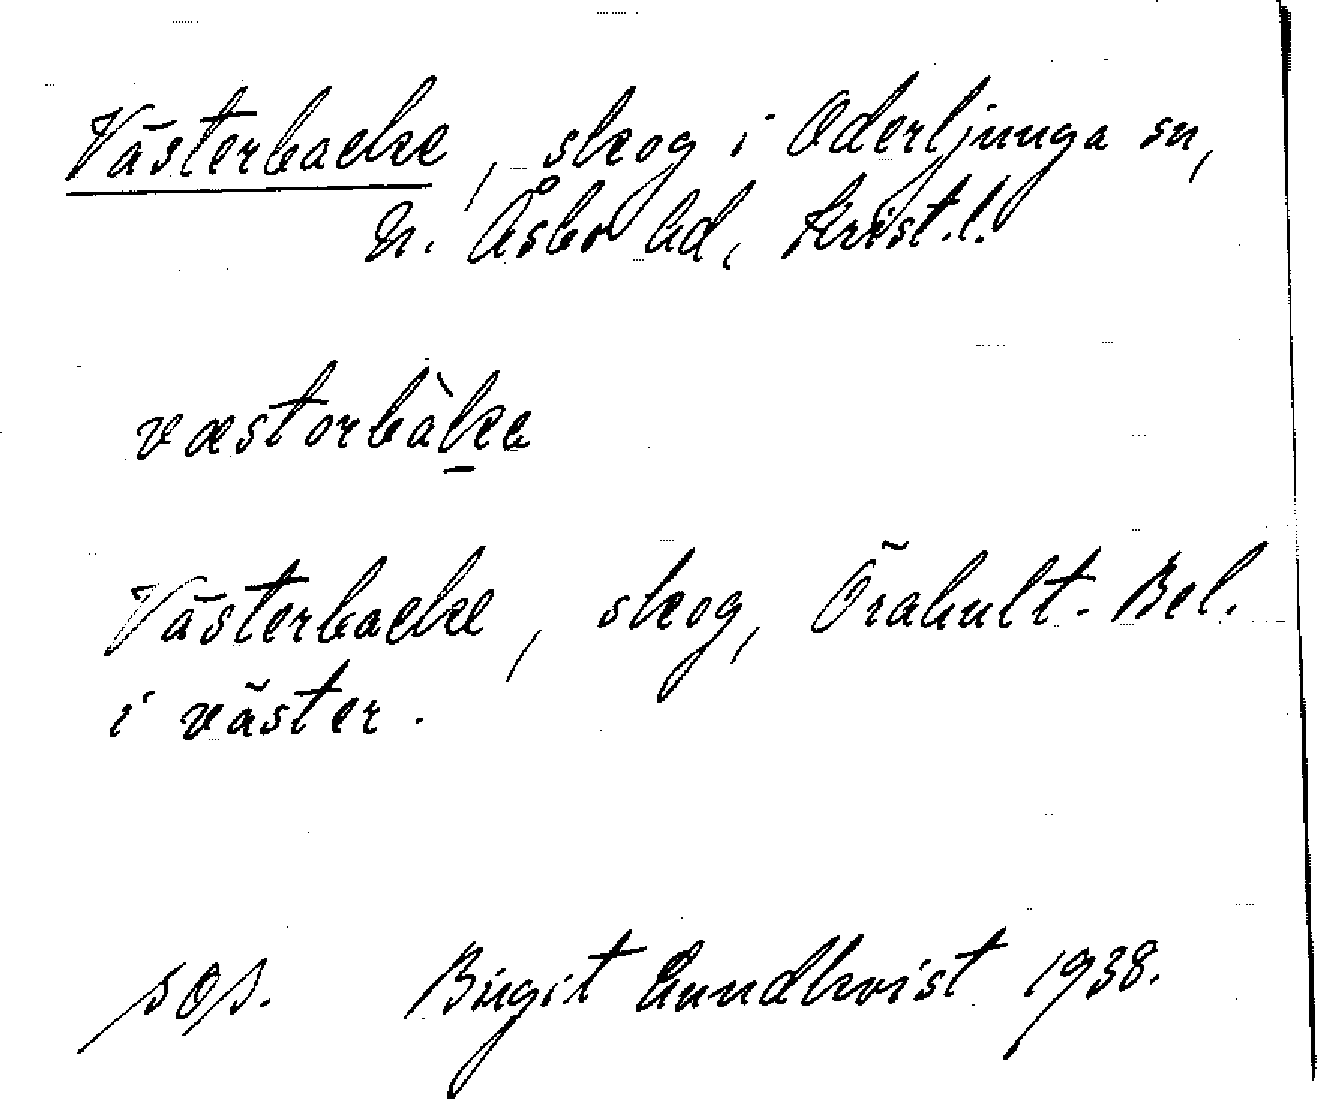 Västerbacke, skog i Oderljunga sn,
N. Åsbo hd, Krist.l.
væstorbàke
Västerbacke, skog, Örahult. Bel.
i väster.
SOS. Birgit Lundkvist 1938.